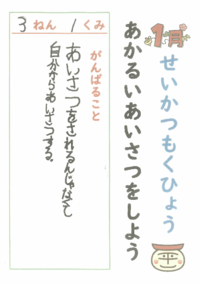 1月
せいかつもくひょう
あかるいあいさつをしよう
3ねん1くみ
がんばること
あいさつをされるんじゃなくて
自分からあいさつする。